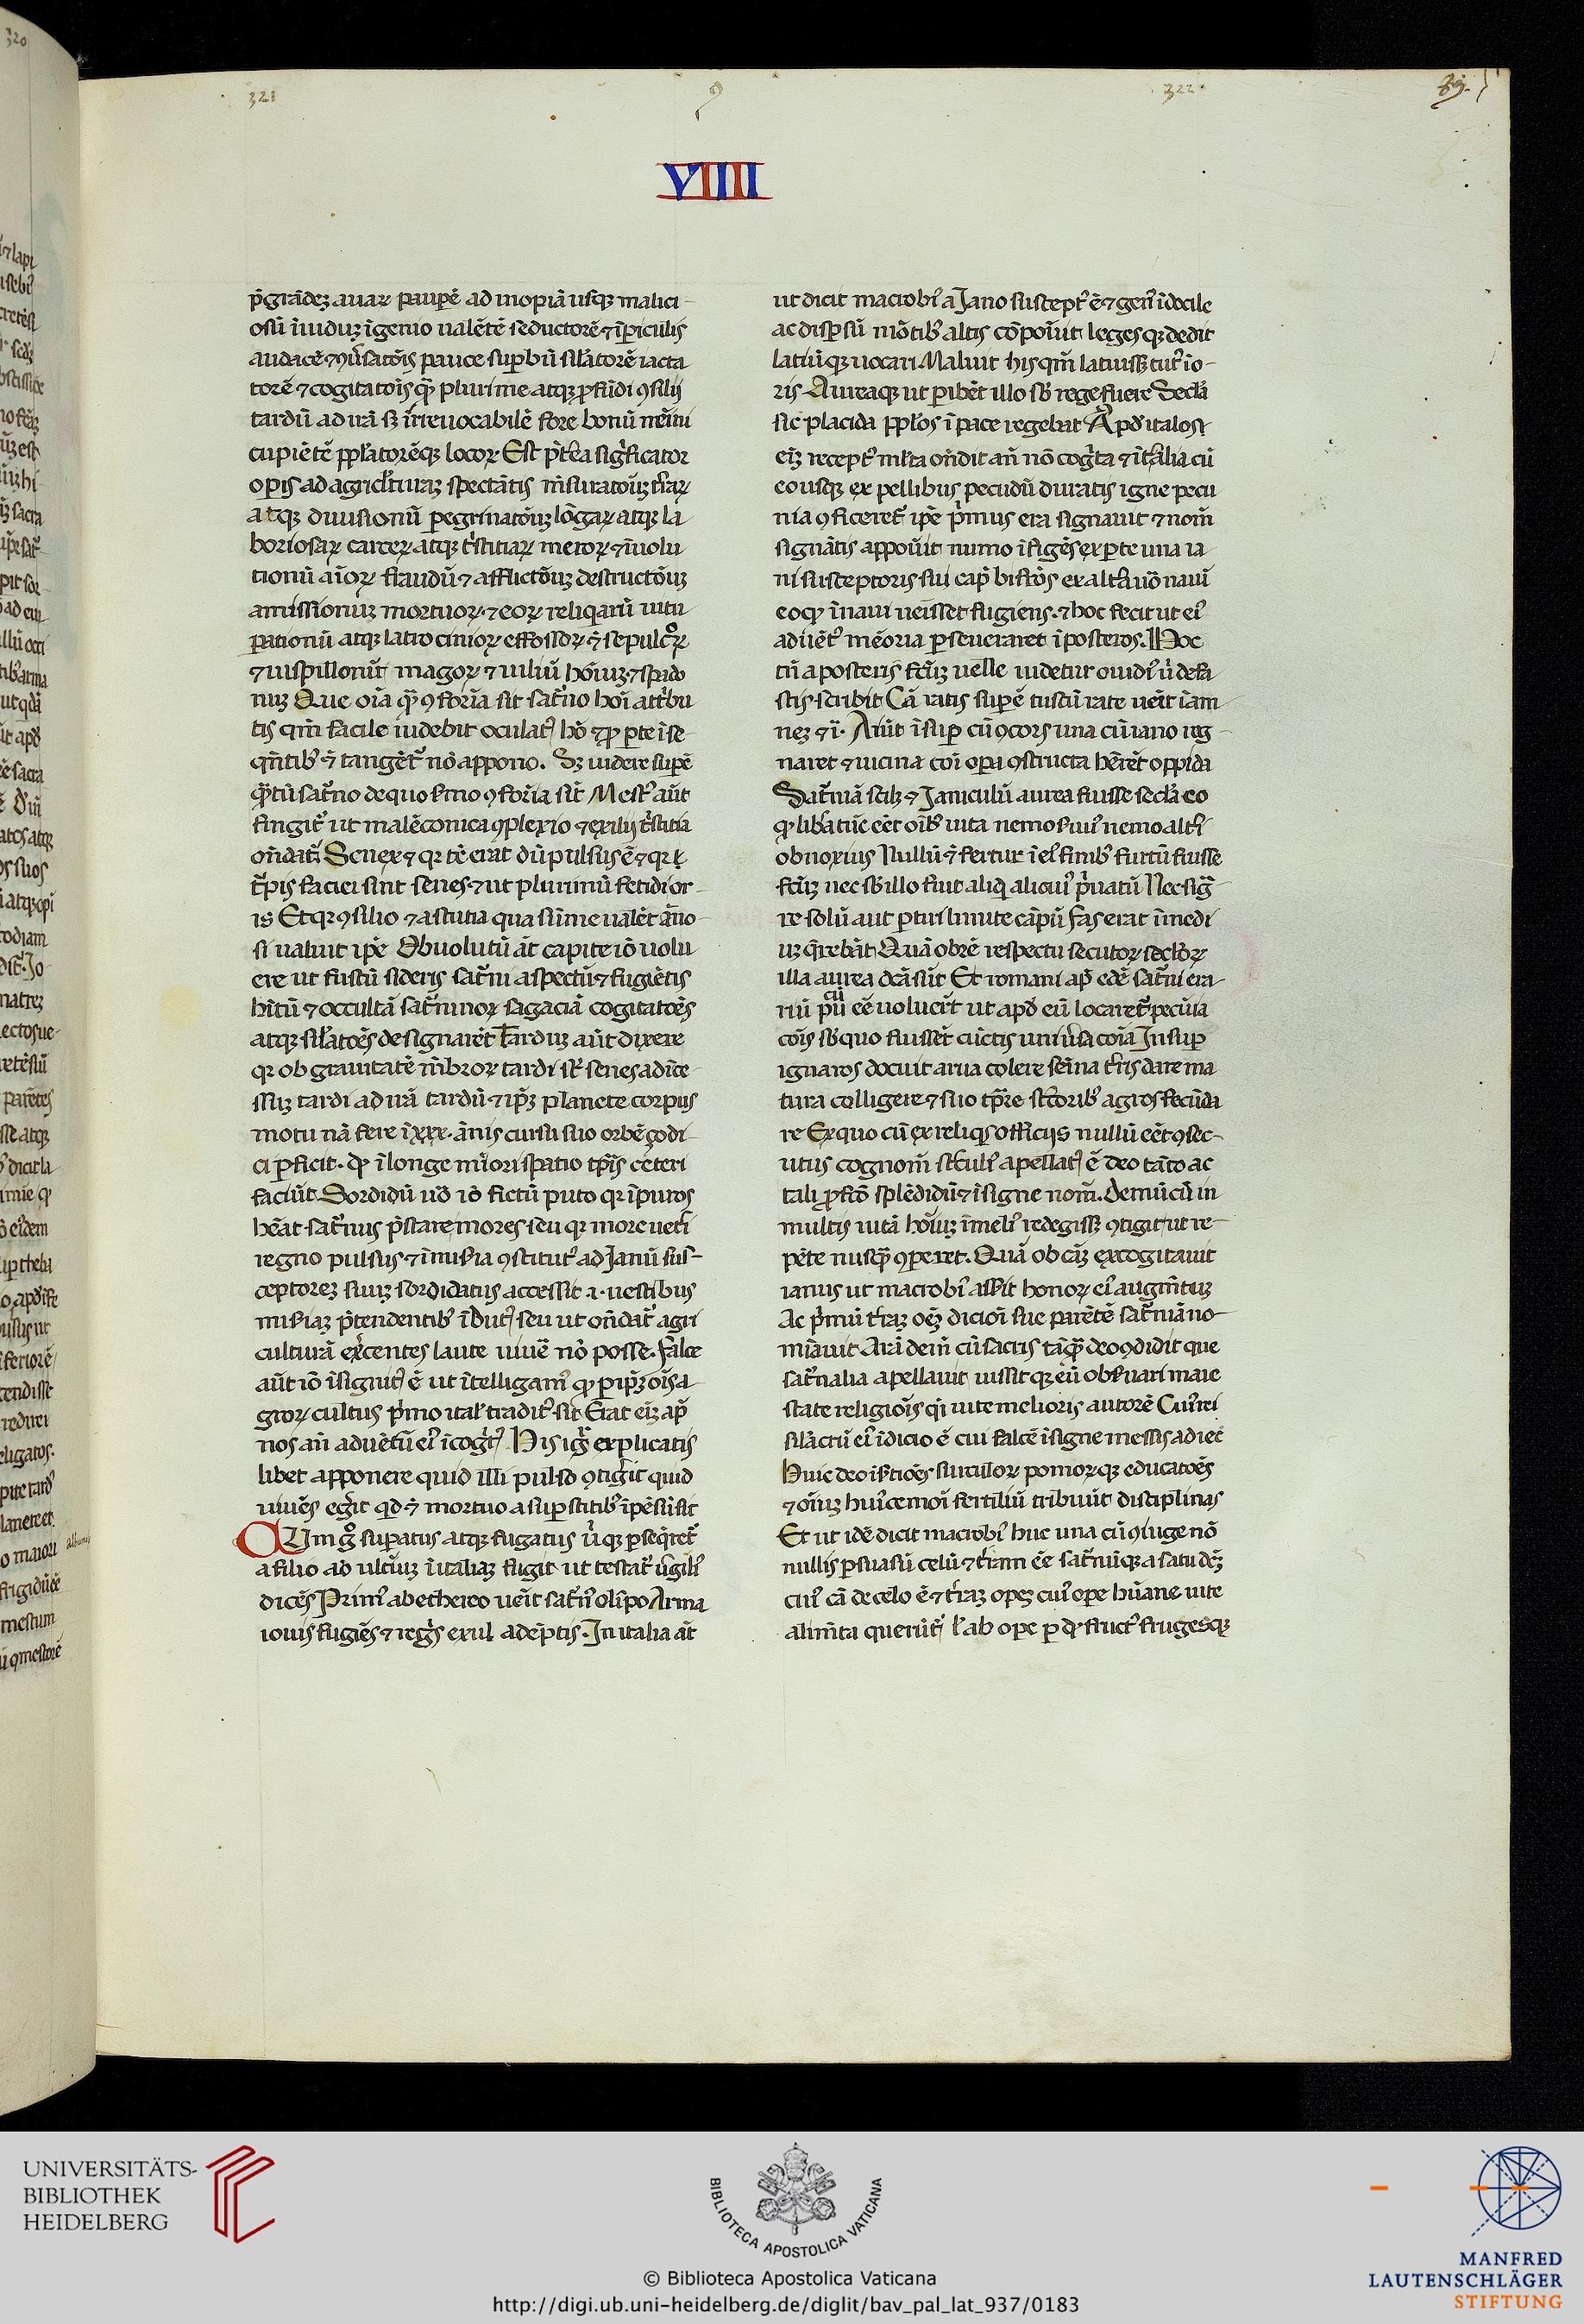 321
9
322
VIIII
p̄grādeʒ auaꝝ paupē ad inopiā usqʒ malici-
osū īuiduʒ īgenio ualētē seductorē ⁊ īpericulis
audacē ⁊ ꝯūsatōis pauce supbū sil̄atorē iacta
torē ⁊ cogitatōis qꝫ plurime atqʒ ꝓfūdi ꝯsilij
tardū ad irā sʒ irreuocabilē fore bonū mēini
cupiētē ppl̄atorēqʒ locoꝝ Est p̄tea sigīficator
opis ad agricl̄turaʒ spectātis mēsuratōuʒ tīaꝝ
atqʒ diuisionū pegrinatōuʒ lōgaꝝ atqʒ la
boriosaꝝ carceꝝ atqʒ tīstitiaꝝ meroꝝ ⁊ īuolu
tionū aīoꝝ fraudū ⁊ afflictōuʒ destructōuʒ
amissionuʒ mortuoꝝ ⁊ eoꝝ reliqarū uitu
pationū atqʒ latrocinioꝝ effossoꝝ ⁊ sepulcoꝝ
⁊ uispillonūt magoꝝ ⁊ uiliū hoīuʒ ⁊ spado
nuʒ Que oīa qꝫ ꝯforīa sīt satīno hoī attību
tis qm̄ facile uidebit oculatꝰ hō ⁊ ꝓ pte īse
qn̄tibꝰ ⁊ tangēt̄ nō appono. Sʒ uidere supē
qꝫtū satīno de quo sīmo ꝯforīa sīt Mestꝰ aūt
fingit̄ ut malēconica ꝯplexio ⁊ exilij tīstitia
on̄dat̄ Senex ⁊ qꝛ tē erat dū pulsus ē ⁊ qꝛ
tīpis faciei sint senes ⁊ ut plurimū fetidior-
is Et qꝛ ꝯsilio ⁊ astutia qua sūme ualēt āno-
si ualuit ipē Obuolutū āt capite iō uolu
ere ut fustū sideris satīni aspectū ⁊ fugiētis
hītū ⁊ occultā satīninoꝝ sagaciā cogitatōēs
atqʒ sil̄atōēs designarēt Tarduʒ aūt dixere
qꝛ ob grauitatē mēbroꝝ tardi sīt senes adīce-
ssuʒ tardi ad irā tardū ⁊ ipʒ planete corpus
motu nā fere ī xxx. ānis cursu suo orbē ʒodi-
ci pficit. qꝫ ī longe miōri spatio tp̄is ceteri
faciūt Sordidū uō iō fictū puto qꝛ īpuros
hēat satīnius p̄stare mores seu qꝛ more uetī
regno pulsus ⁊ ī misīa ꝯstitutꝰ ad Janū sus-
ceptoreʒ suuʒ sordidatus accessit .i. uestibus
misīaʒ p̄tendentibꝰ īdutꝰ seu ut on̄dat̄ agri
culturā exīcentes laute uiuē nō posse. Falce
aūt iō īsignitꝰ ē ut ītelligamꝰ qꝫ p ipʒ oīs a-
groꝝ cultus p̄mo ital̄ tradit̄ sit Erat eīʒ ap̄
nos an̄ aduētū eiꝰ īcogītꝰ His igꝫ explicatis
libet apponere quid illi pulso ꝯtigīt quid
uiuēs egīt qd ⁊ mortuo a supstitibꝰ īpēsū sit
CUm gꝫ supatus atqʒ fugatus ūqʒ pseqret̄
a filio ad ulcīuʒ ī italiaʒ fugit ut testat̄ ūgiliꝰ
dicēs Primꝰ ab ethereo uēit satīnꝰ olīpo Arma
iouis fugiēs ⁊ regīs exul adēptis. In italia āt
ut dicit macrobiꝰ a Jano susceptꝰ ē ⁊ genꝰ īdocile
ac dispsū mōtibꝰ altis cōpoūit leges qʒ dedit
latiūqʒ uocari Maluit his qm̄ latuissʒ tutꝰ īo-
ris Aureaqʒ ut pibēt illo sb̄ rege fuere Secl̄a
sic placida ppl̄os ī pace regebat Apd̄ italos ⁊
eīʒ receptꝰ ml̄ta on̄dit an̄ nō cogīta ⁊ ītalia cū
eousqʒ ex pellibus pecudū duratis igne pecu
nia ꝯficeret̄ ipē p̄mus era signauit ⁊ nom̄
signātis appoūit numo īfigēs ex pte una ia
ni susceptoris sui cap̄ bifrōs ex altā uō nauī
eo qꝫ ī naui ueīsset fugiens. ⁊ hoc fecit ut eiꝰ
aduētꝰ mēoria pseueraret ī posteros. Hoc
tū a posteris fcūʒ uelle uidetur ouidiꝰ ū de fa
stis scribit Cā ratis supē tuscū rate uēit ī am
neʒ ⁊ ī. Aiūt īsup cū ꝯcors una cū iano reg-
naret ⁊ uicina coī opa ꝯstructa hērēt oppida
Satīniā scilʒ ⁊ Janiculū aurea fuisse secl̄a eo
qꝫ libātiue eēt oībꝰ uita nemo suiꝰ nemo altī
obnoxius Nullū ⁊ fertur ī eiꝰ finibꝰ furtū fuisse
fcūʒ nec sb̄ illo fuit aliqd alicuiꝰ p̄uatū Nec sig̃
re solū aut ptiri limite cāpū fas erat ī medi
uʒ qrebāt Quā obrē respectu secutoꝝ secl̄oꝝ
illa aurea dcā sūt Et romani ap̄ edē satīni era
riū p̄ū eē uoluerūt ut apd̄ eū locaret̄ pecūia
cōis sb̄ quo fuissēt cūctis uniūsa coīa Insup
ignaros docuit arua colere seīna tīris dare ma
tura colligere ⁊ suo tp̄re stercoribꝰ agros fecūda
re Ex quo cū ex reliqs officijs nullū eēt ꝯsec-
utus cognom̄ stīculiꝰ apellatꝰ ē deo tāto ac
tali ꝓfcō splēdidū ⁊ īsigne nom̄. Demū cū in
multis uitā hoīuʒ ī meliꝰ redegissʒ ꝯtigit ut re-
pēte nusqꝫ ꝯperet. Quā ob cāʒ excogitauit
ianus ut macrobiꝰ assīit honoꝝ eiꝰ augmētuʒ
Ac p̄mū tīraʒ oēʒ dicioī sue parētē satīniā no-
mīauit Arā deīn cū sacris tāqꝫ deo ꝯdidit que
satīnalia apellauit iussitqʒ eū obsīuari maie
state religiōis qi uite melioris autorē Cuiꝰ rei
silācrū eiꝰ īdicio ē cui falcē īsigne messis adiecīt
Huic deo īstiōēs suculloꝝ pomoꝝqʒ educatōēs
⁊ oīuʒ huiꝰcemoī fertiliū tribuūt disciplinas
Et ut idē dicit macrobiꝰ huc una cū ꝯiuge nō
nullis psuasū celū ⁊ tīram eē satīnūqʒ a satu dcʒ
cuiꝰ cā de celo ē ⁊ tīraʒ opeʒ cuiꝰ ope hūane uite
alimēta querūt̄ ł ab ope p qꝫ fructꝰ frugesqʒ
UNIVERSITÄTS-
BIBLIOTHEK
HEIDELBERG
BIBLIOTECA APOSTOLICA VATICANA
© Biblioteca Apostolica Vaticana
http://digi.ub.uni-heidelberg.de/diglit/bav_pal_lat_937/0183
MANFRED
LAUTENSCHLÄGER
STIFTUNG